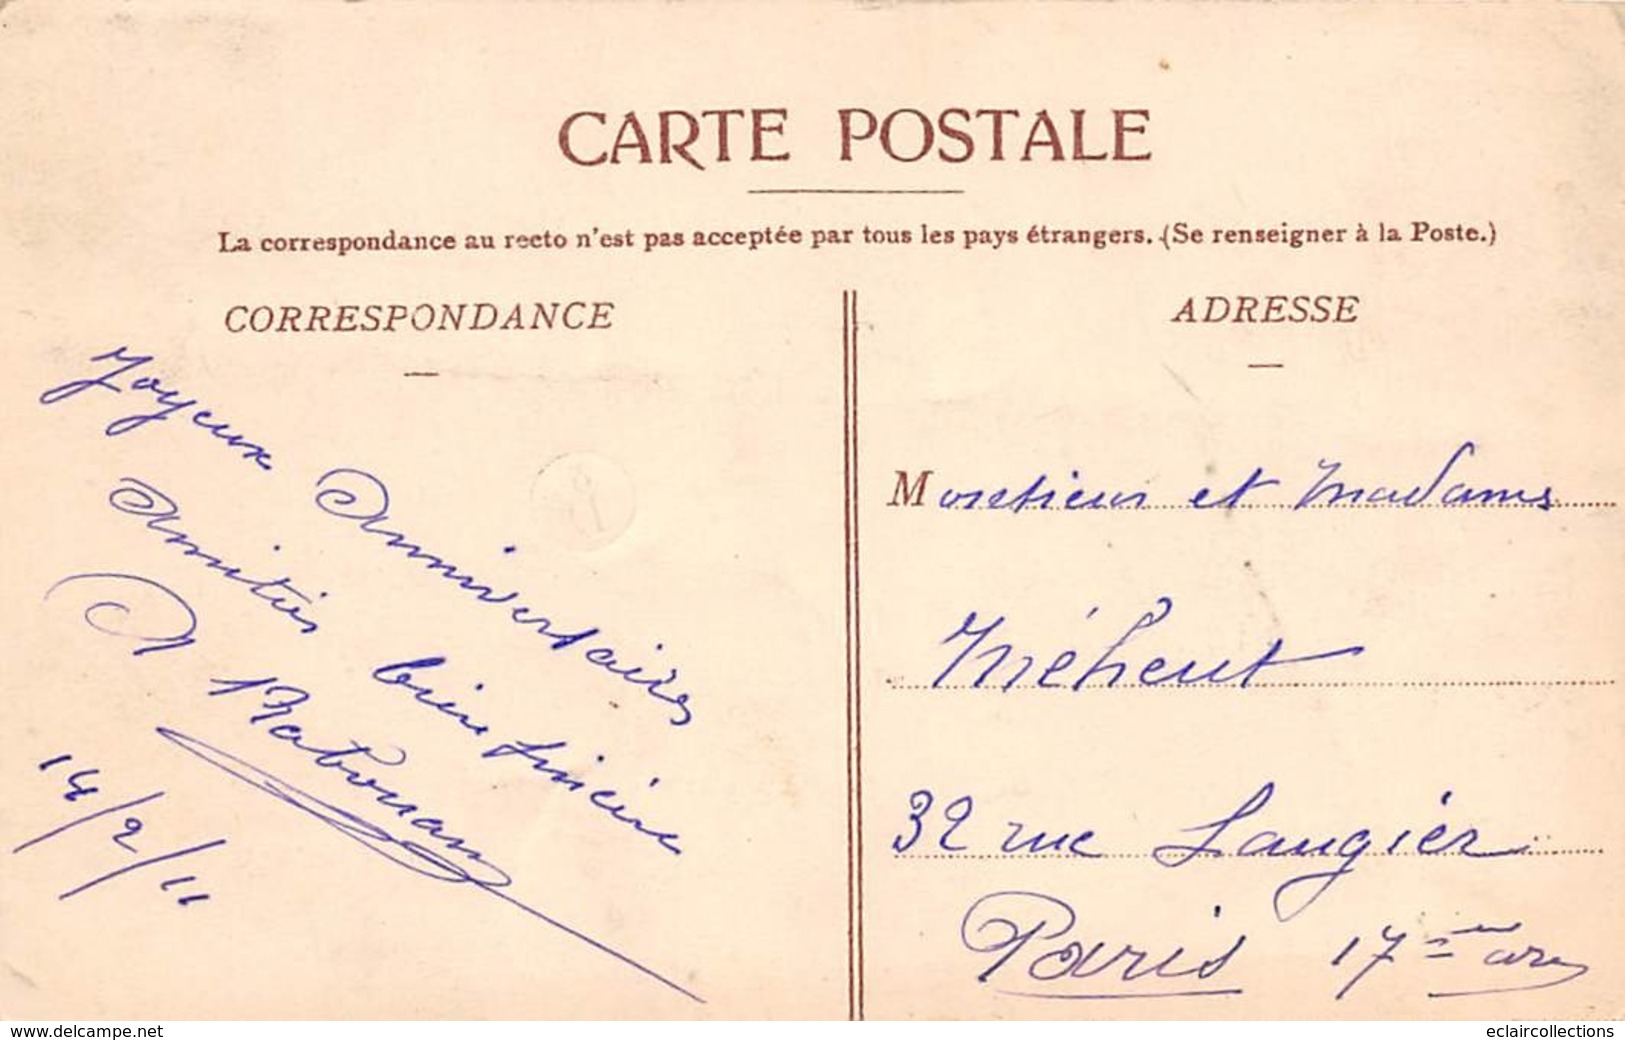 CARTE POSTALE
La correspondance au recto n'est pas acceptée par tous les pays étrangers. (Se renseigner à la Poste.)
CORRESPONDANCE
Joyeux Anniversaires
Amitiés bien sincère
14/2/11
ADRESSE
Monsieur et Madame
Méheut
32 rue Laugier
Paris 17ème arr
www.delcampe.net
eclaircollections